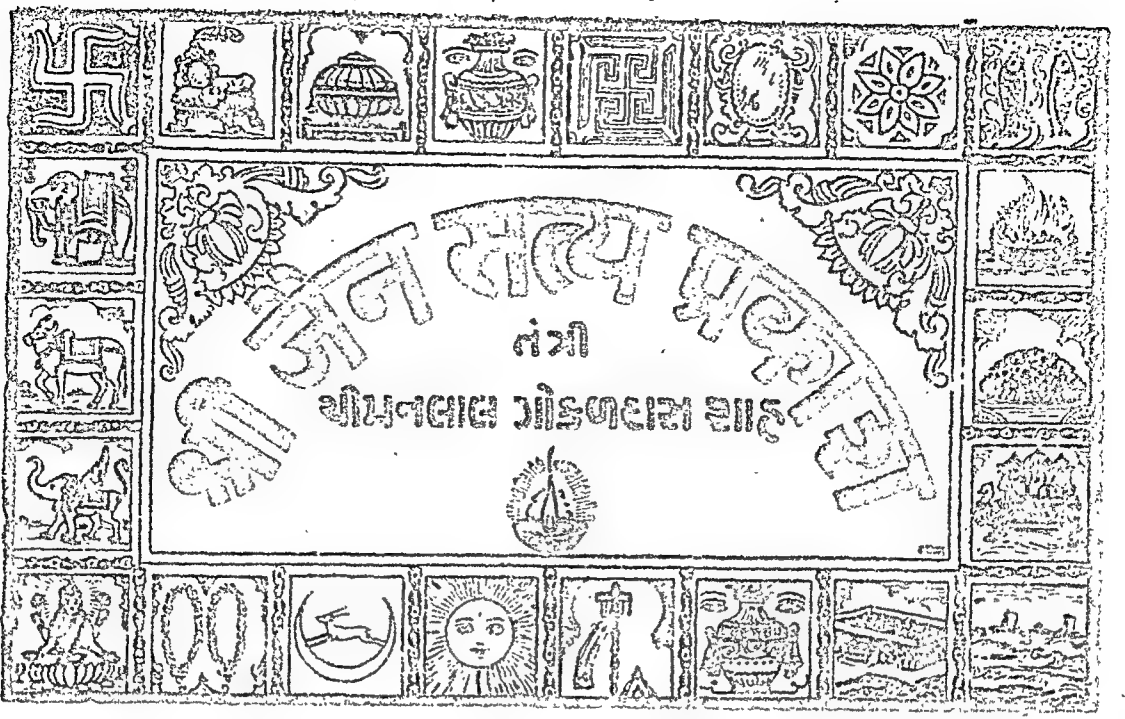 श्री जैन सत्य प्रकाश
તંત્રી
ચીમનલાલ ગોકળદાસ શાહ